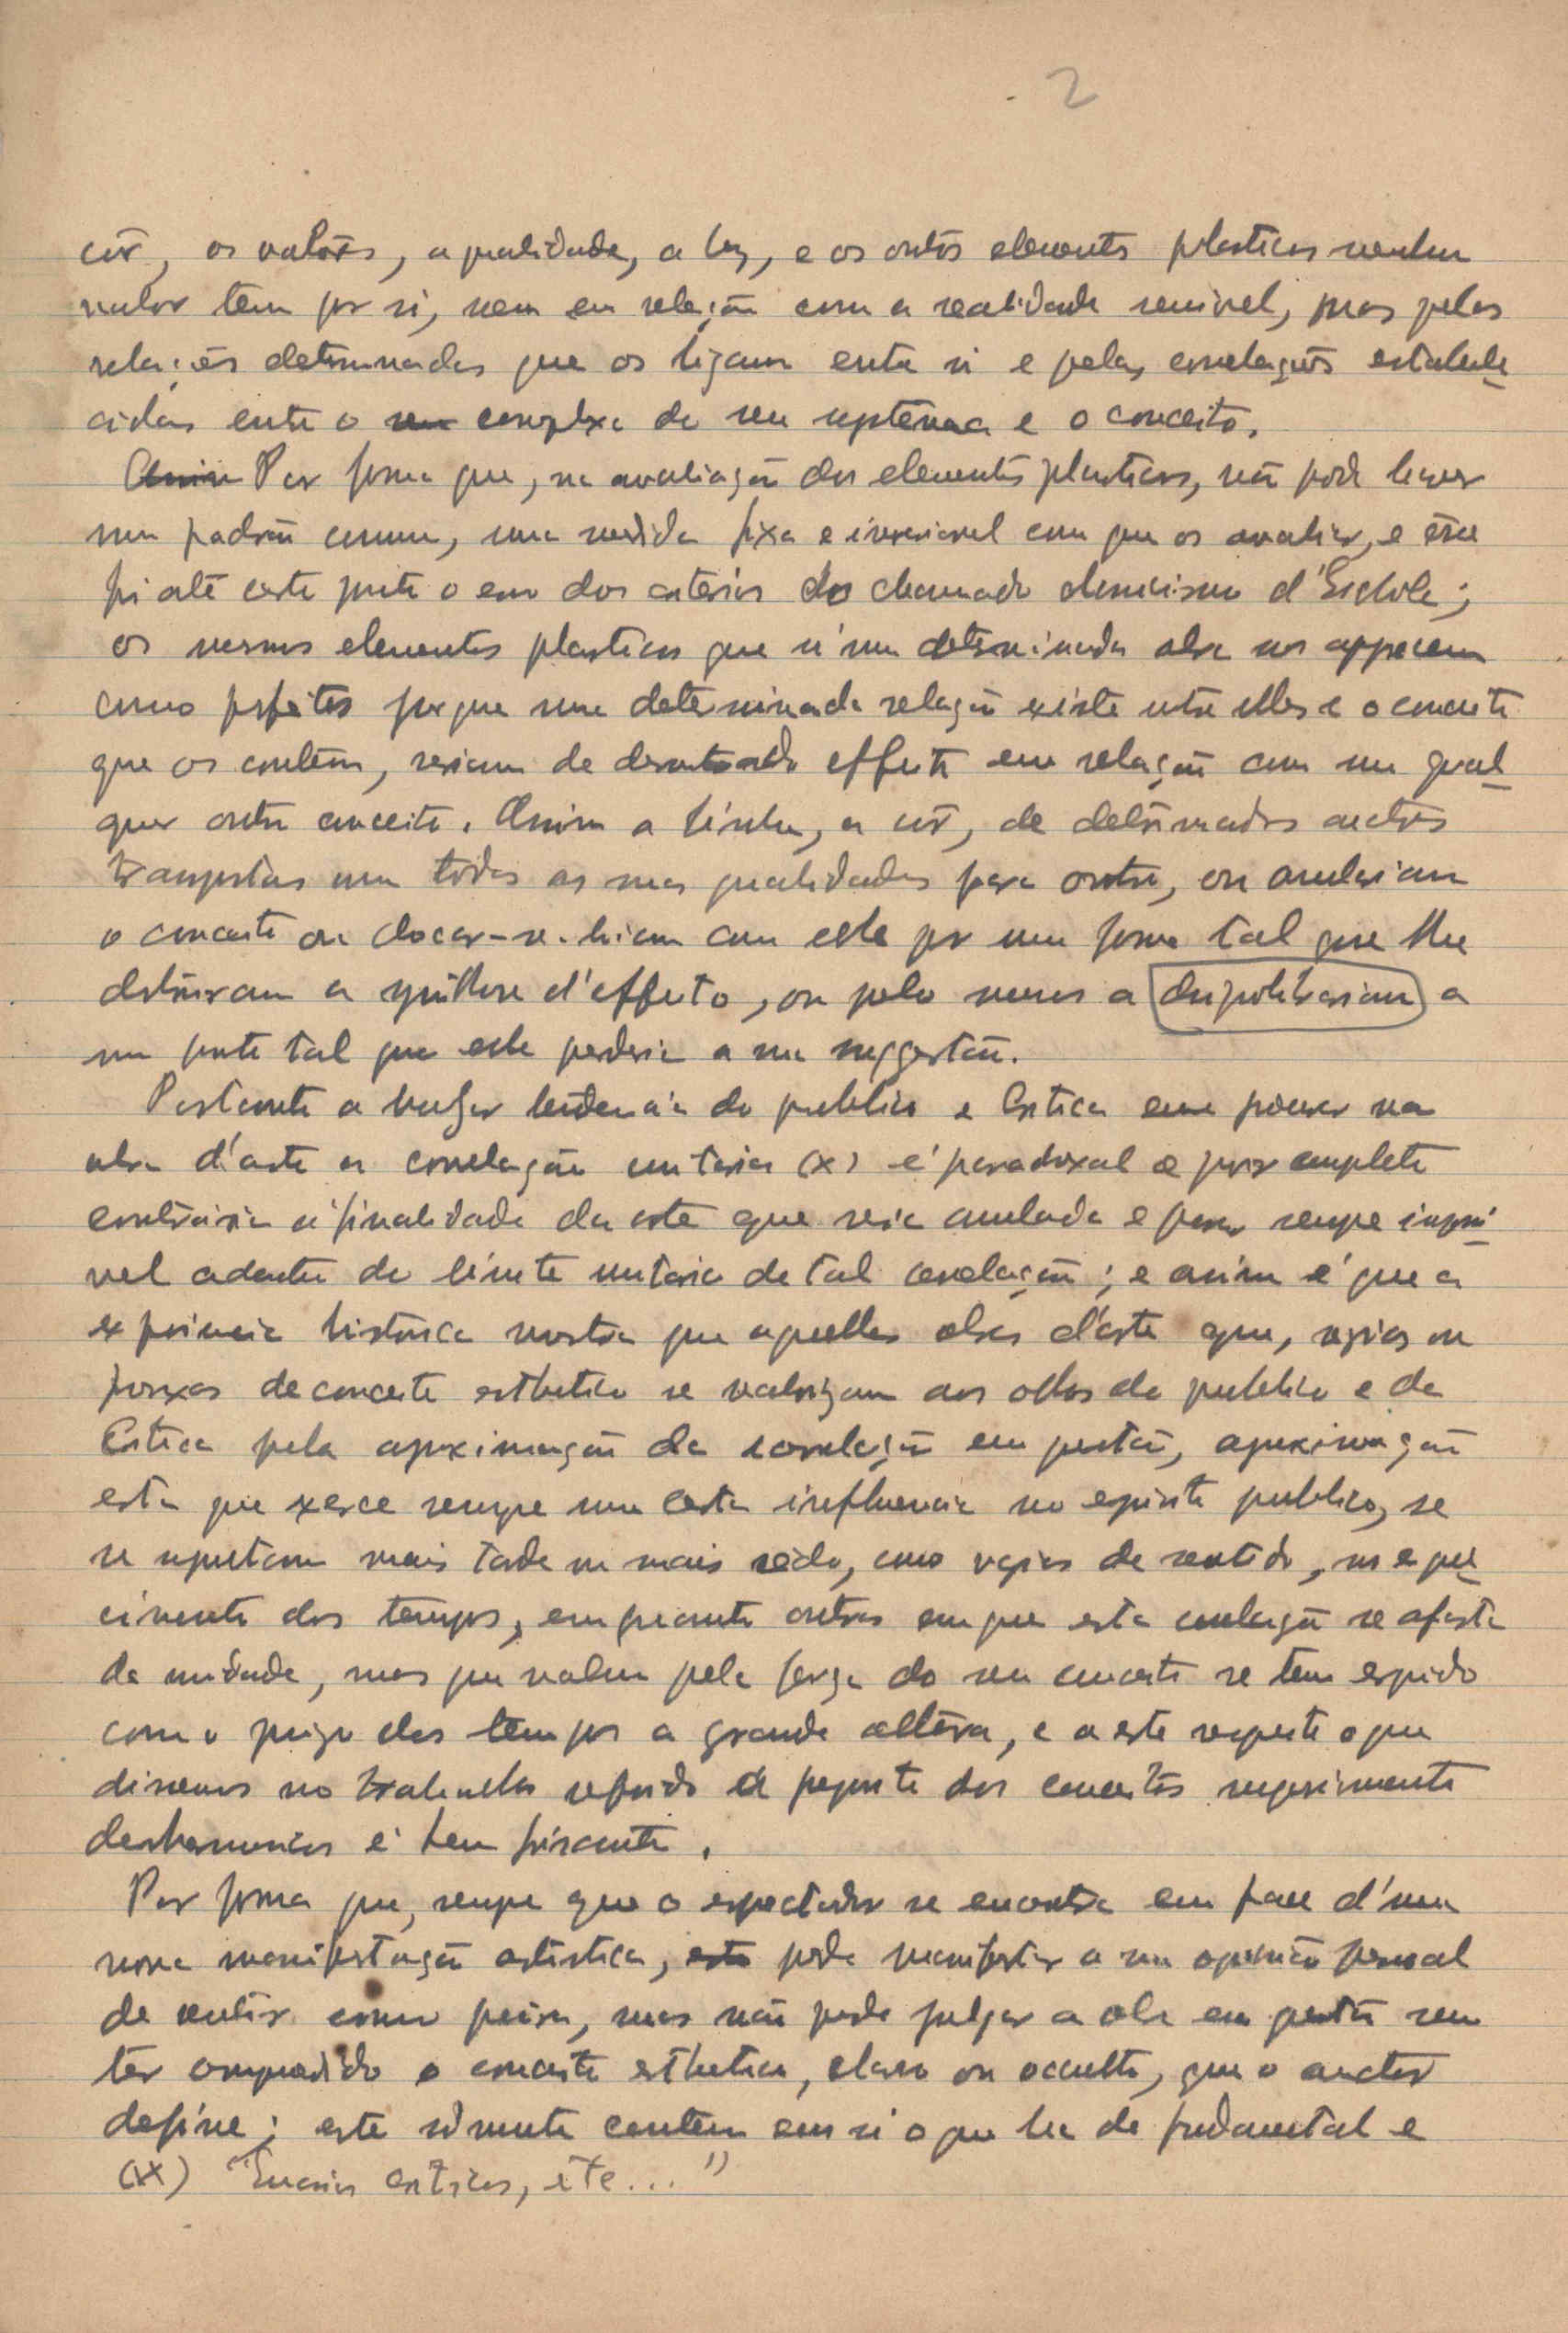 2
côr, os valôres, a qualidade, a luz, e os outros elementos plasticos nenhum
valor tem por si, nem em relação com a realidade sensivel, mas pelas
relações determinadas que os ligam entre si e pelas correlações estabele-
cidas entre o complexo do seu systema e o conceito.
Assim Por forma que, na avaliação dos elementos plasticos, não pode haver
um padrão comum, uma medida fixa e invariavel com que os avaliar, e esse
foi até certo ponto o erro dos criterios do chamado classicismo d'Eschola;
os mesmos elementos plasticos que n'uma determinada obra nos apparecem
como perfeitos porque uma determinada relação existe entre elles e o conceito
que os contêm, seriam de desastrado effeito em relação com um qual-
quer outro conceito. Assim a linha, a côr, de determinados auctores
transpostas com todas as suas qualidades para outro, ou anulariam
o conceito ou chocar-se-hiam com este por uma forma tal que lhe
destruiram a synthese d'effeito, ou pelo menos a despolitrariam a
um ponto tal que este perderia a sua suggestão.
Portanto a vulgar tendencia do publico e Critica em procurar na
obra d'arte a correlação unitaria (x) é paradoxal e por completo
contraria á finalidade da arte que seria anulada e para sempre impos-
vel adentro do limite unitario de tal correlação; e assim é que a
experiencia historica mostra que aquellas obras d'arte que, vazias ou
frouxas de conceito esthetico se valorizam aos olhos do publico e da
Critica pela aproximação da correlação em questão, aproximação
esta que exerce sempre uma certa influencia no espirito publico, se
se reputam mais tarde ou mais cedo, como vazias de sentido, no esque-
cimento dos tempos, emquanto outras em que esta correlação se afasta
da unidade, mas que valem pela força do seu conceito se tem erguido
com o juizo dos tempos a grande altura, e a este respeito o que
dissemos no trabalho referido a proposito dos conceitos
desharmonicos é bem frisante.
Por forma que, sempre que o espectador se encontra em face d'uma
nova manifestação artistica, pode manifestar a sua opinião pessoal
de sentir como queira, mas não pode julgar a obra em questão sem
ter comprehendido o conceito esthetico, claro ou occulto, que o auctor
define; este sómente contem em si o que ha de fundamental e
(x) "Ensaios criticos, etc..."